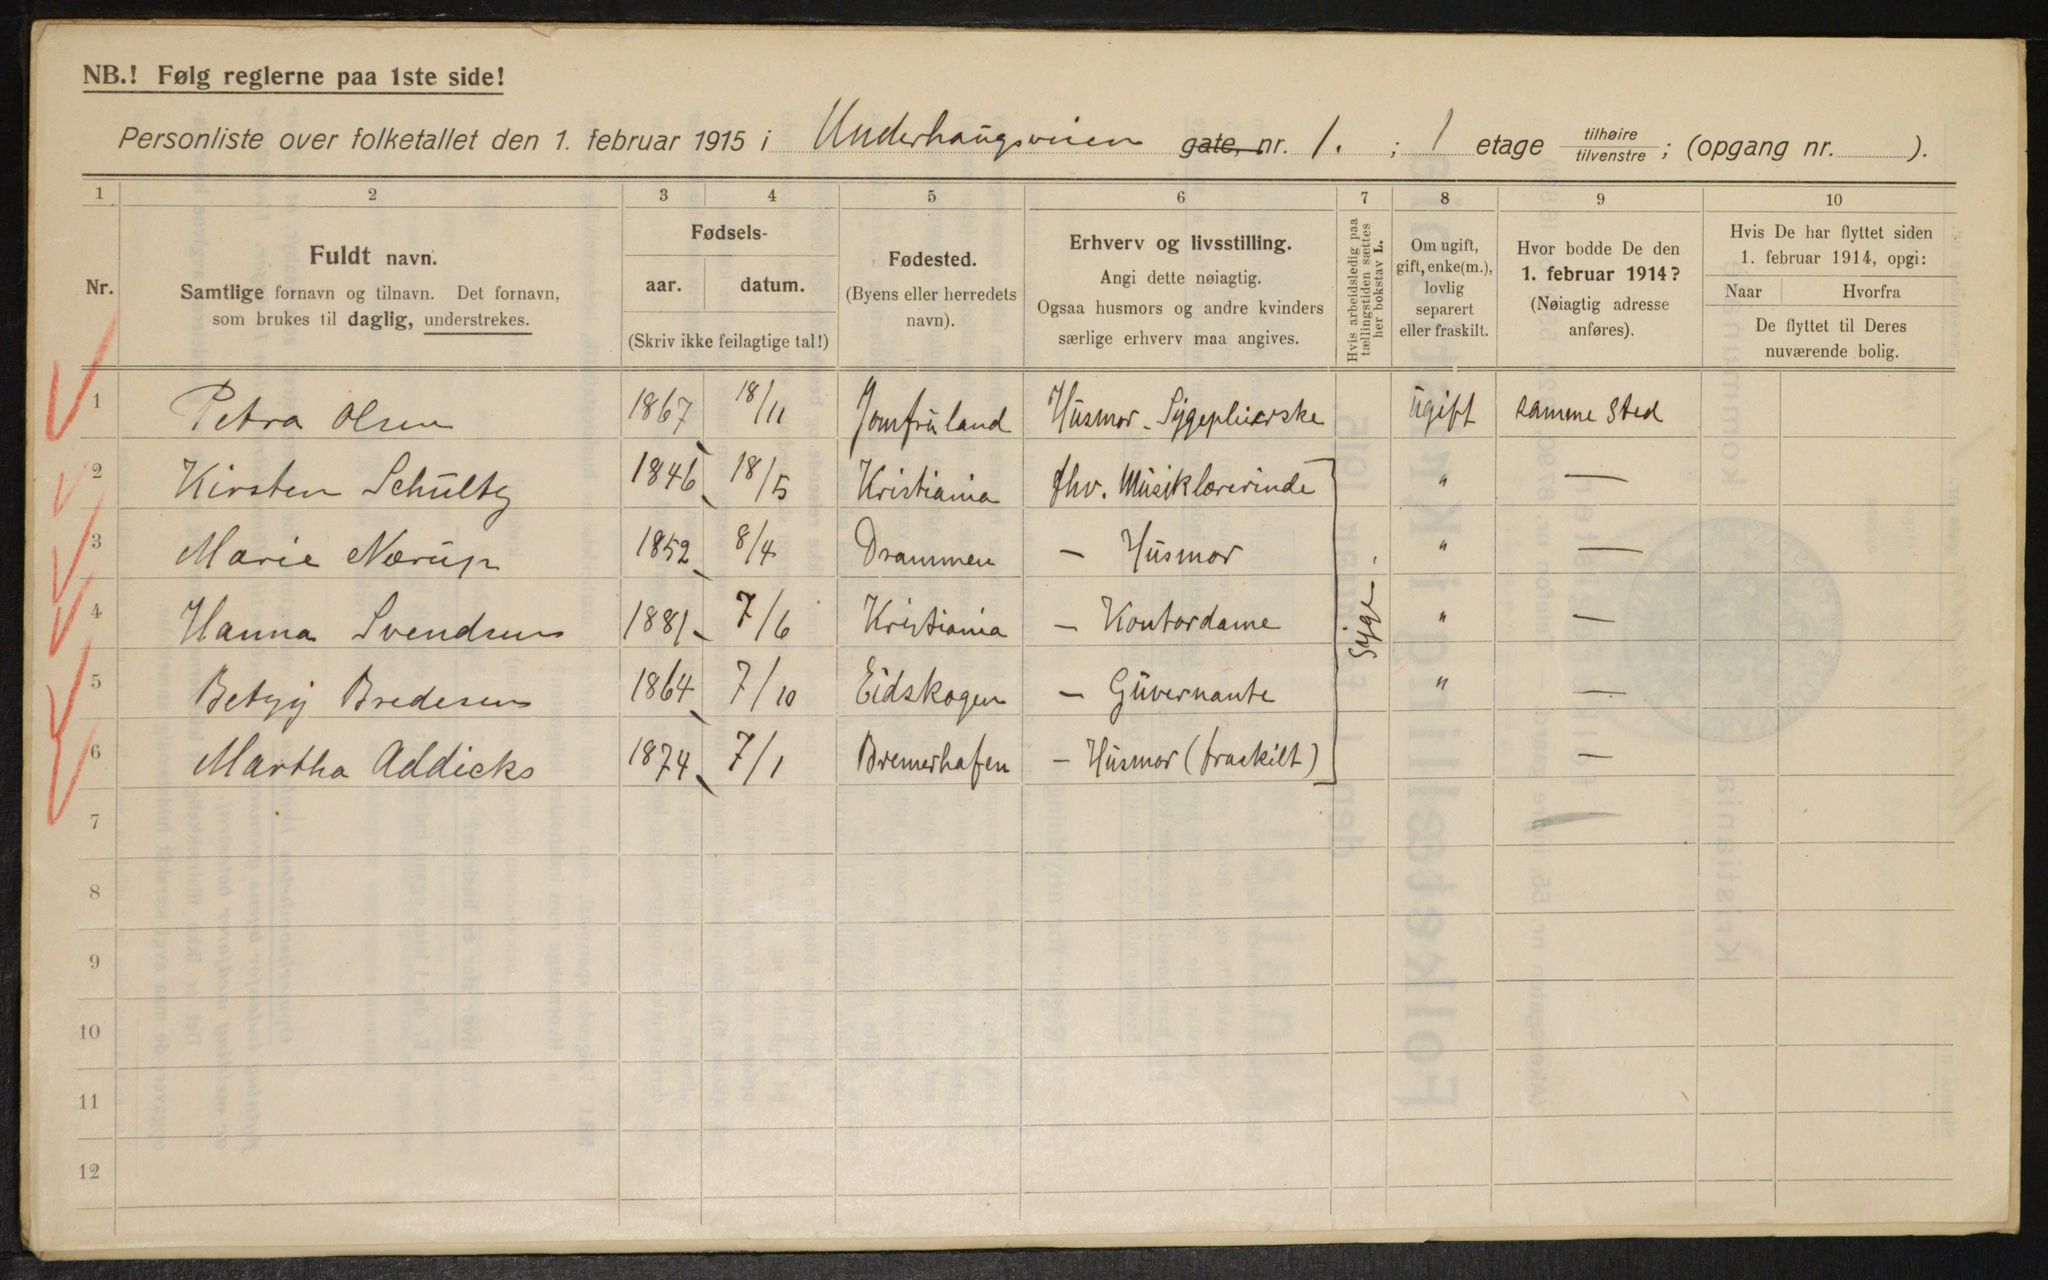 NB.! Følg reglerne paa 1ste side!
Personliste over folketallet den 1. februar 1915 i Underhaugsveien gate, nr. 1. ; 1 etage tilhøire / tilvenstre ; (opgang nr. ).
1 2 3 4 5 6 7 8 9 10
Nr.
Fuldt navn.
Samtlige fornavn og tilnavn. Det fornavn,
som brukes til daglig, understrekes.
Fødsels-
aar. datum.
(Skriv ikke feilagtige tal!)
Fødested.
(Byens eller herredets
navn).
Erhverv og livsstilling.
Angi dette nøiagtig.
Ogsaa husmors og andre kvinders
særlige erhverv maa angives.
Hvis arbeidsledig paa
tællingstiden sættes
her bokstav L.
Om ugift,
gift, enke(m.),
lovlig
separert
eller fraskilt.
Hvor bodde De den
1. februar 1914?
(Nøiagtig adresse
anføres).
Hvis De har flyttet siden
1. februar 1914, opgi:
Naar Hvorfra
De flyttet til Deres
nuværende bolig.
1 Petra Olsen 1867 18/11 Jomfruland Husmor - Sygepleierske ugift samme sted
2 Kirsten Schultz 1846 18/5 Kristiania fhv. Musiklærerinde " —
3 Marie Nærup 1852 8/4 Drammen — Husmor " —
4 Hanna Svendsen 1881 7/6 Kristiania — Kontordame " —
5 Betzy Bredesen 1864 7/10 Eidskogen — Guvernante " —
6 Martha Addicks 1874 7/1 Bremerhafen — Husmor (fraskilt) —
Syge.
7
8
9
10
11
12